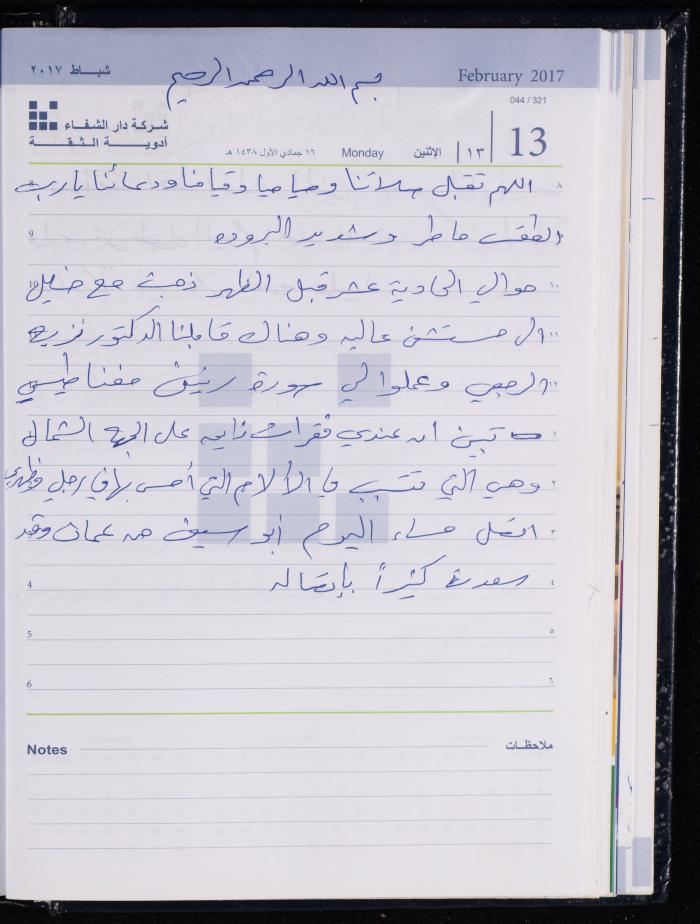 شباط ٢٠١٧
بسم الله الرحمن الرحيم
February 2017
044 / 321
شركة دار الشفاء
أدوية الثقة
١٦ جمادي الأول ١٤٣٨ هـ
Monday الإثنين ١٣ 13
اللهم تقبل صلاتنا وصيامنا وقيامنا ودعائنا يا رب
٨
الطقس ماطر وشديد البروده
9 ٩
حوالي الحادية عشر قبل الظهر ذهبت مع خليل
10 ١٠
الى مستشفى عاليه وهناك قابلنا الدكتور نزيه
١١
الرجعي وعملوا لي سورة رنين مغناطيسي
١٢
تبين ان عندي فقرات نايحه على الجهه الشمال
١
وهي التي تتسبب في الألام التي أحس بها في رجلي وظهري
٢
اتصل مساء اليوم أبو سيف من عمان وقد
٣
سعدت كثيراً بإتصاله
4 ٤
5 ٥
6 ٦
Notes ملاحظات